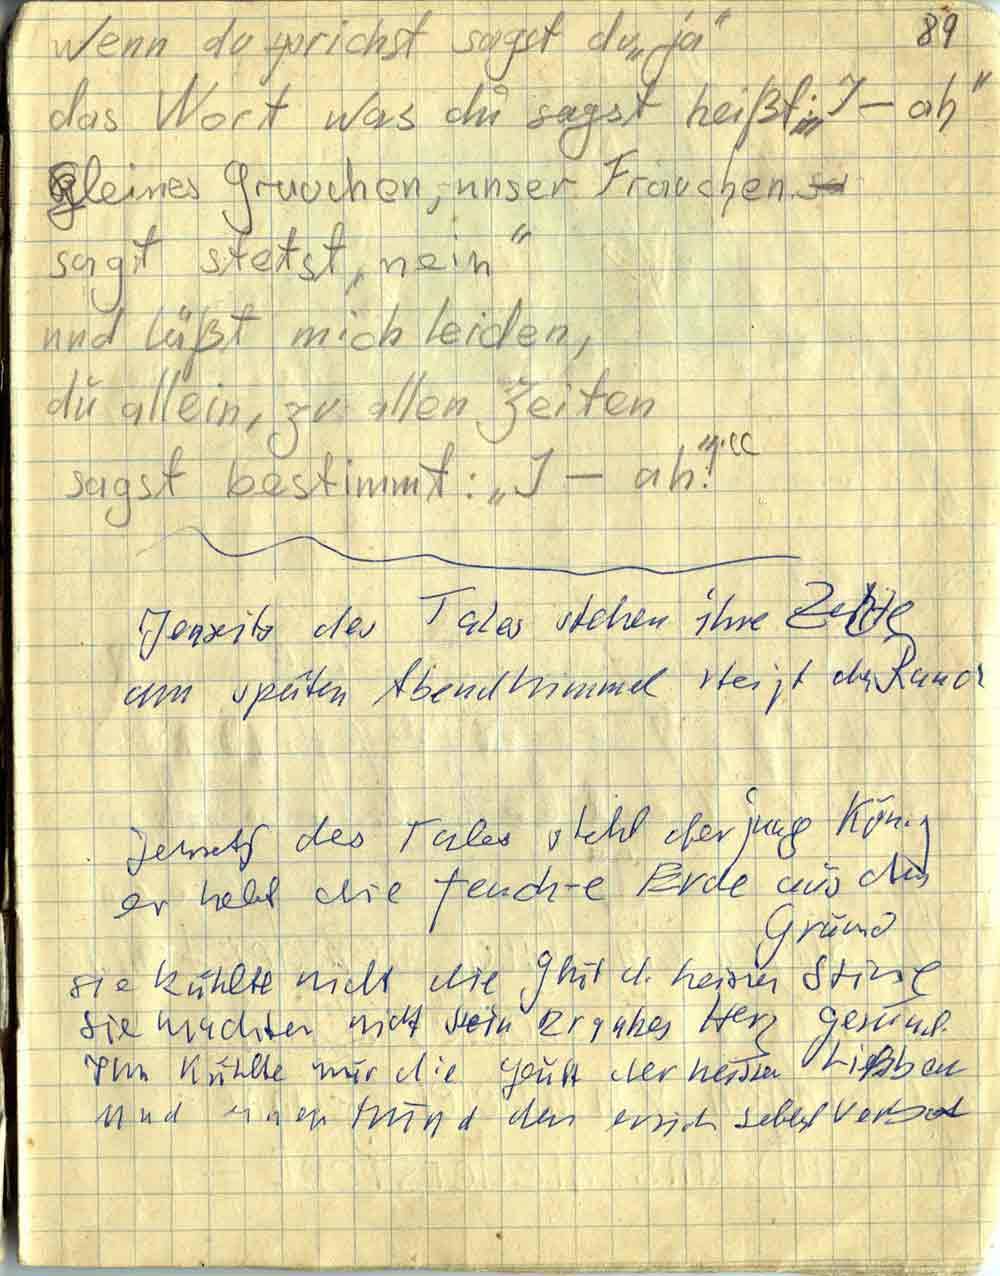 89
wenn du sprichst sagst du „ja“
das Wort was du sagst heißt: „I – ah“
gleines Grauchen, unser Frauchen
sagt stetst „nein“
und läßt mich leiden,
dŭ allein, zu allen Zeiten
sagst bestimmt: „I – ah!“
Jenseits des Tales stehen ihre Zelte
am späten Abendhimmel steigt der Rauch
Jenseits des Tales steht der junge König
er hebt die feuchte Erde aus dem
Grund
sie kühlte nicht die Glut d. heissen Stirne
sie machten nicht sein Herz gesund.
Ihn kühlte nur die der heissen
und Mund den er sich selbst verbot